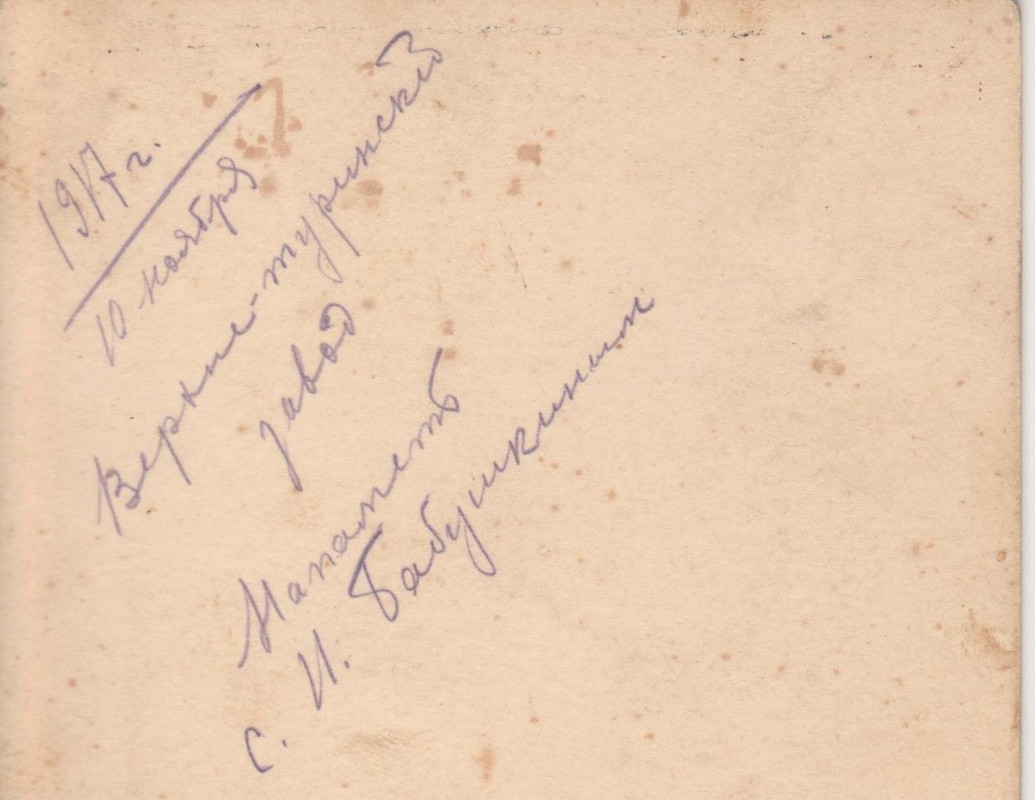 1917 г.
10 ноября
Верхне-туринскiй
завод
Напамять
с. И. Бабушкиным